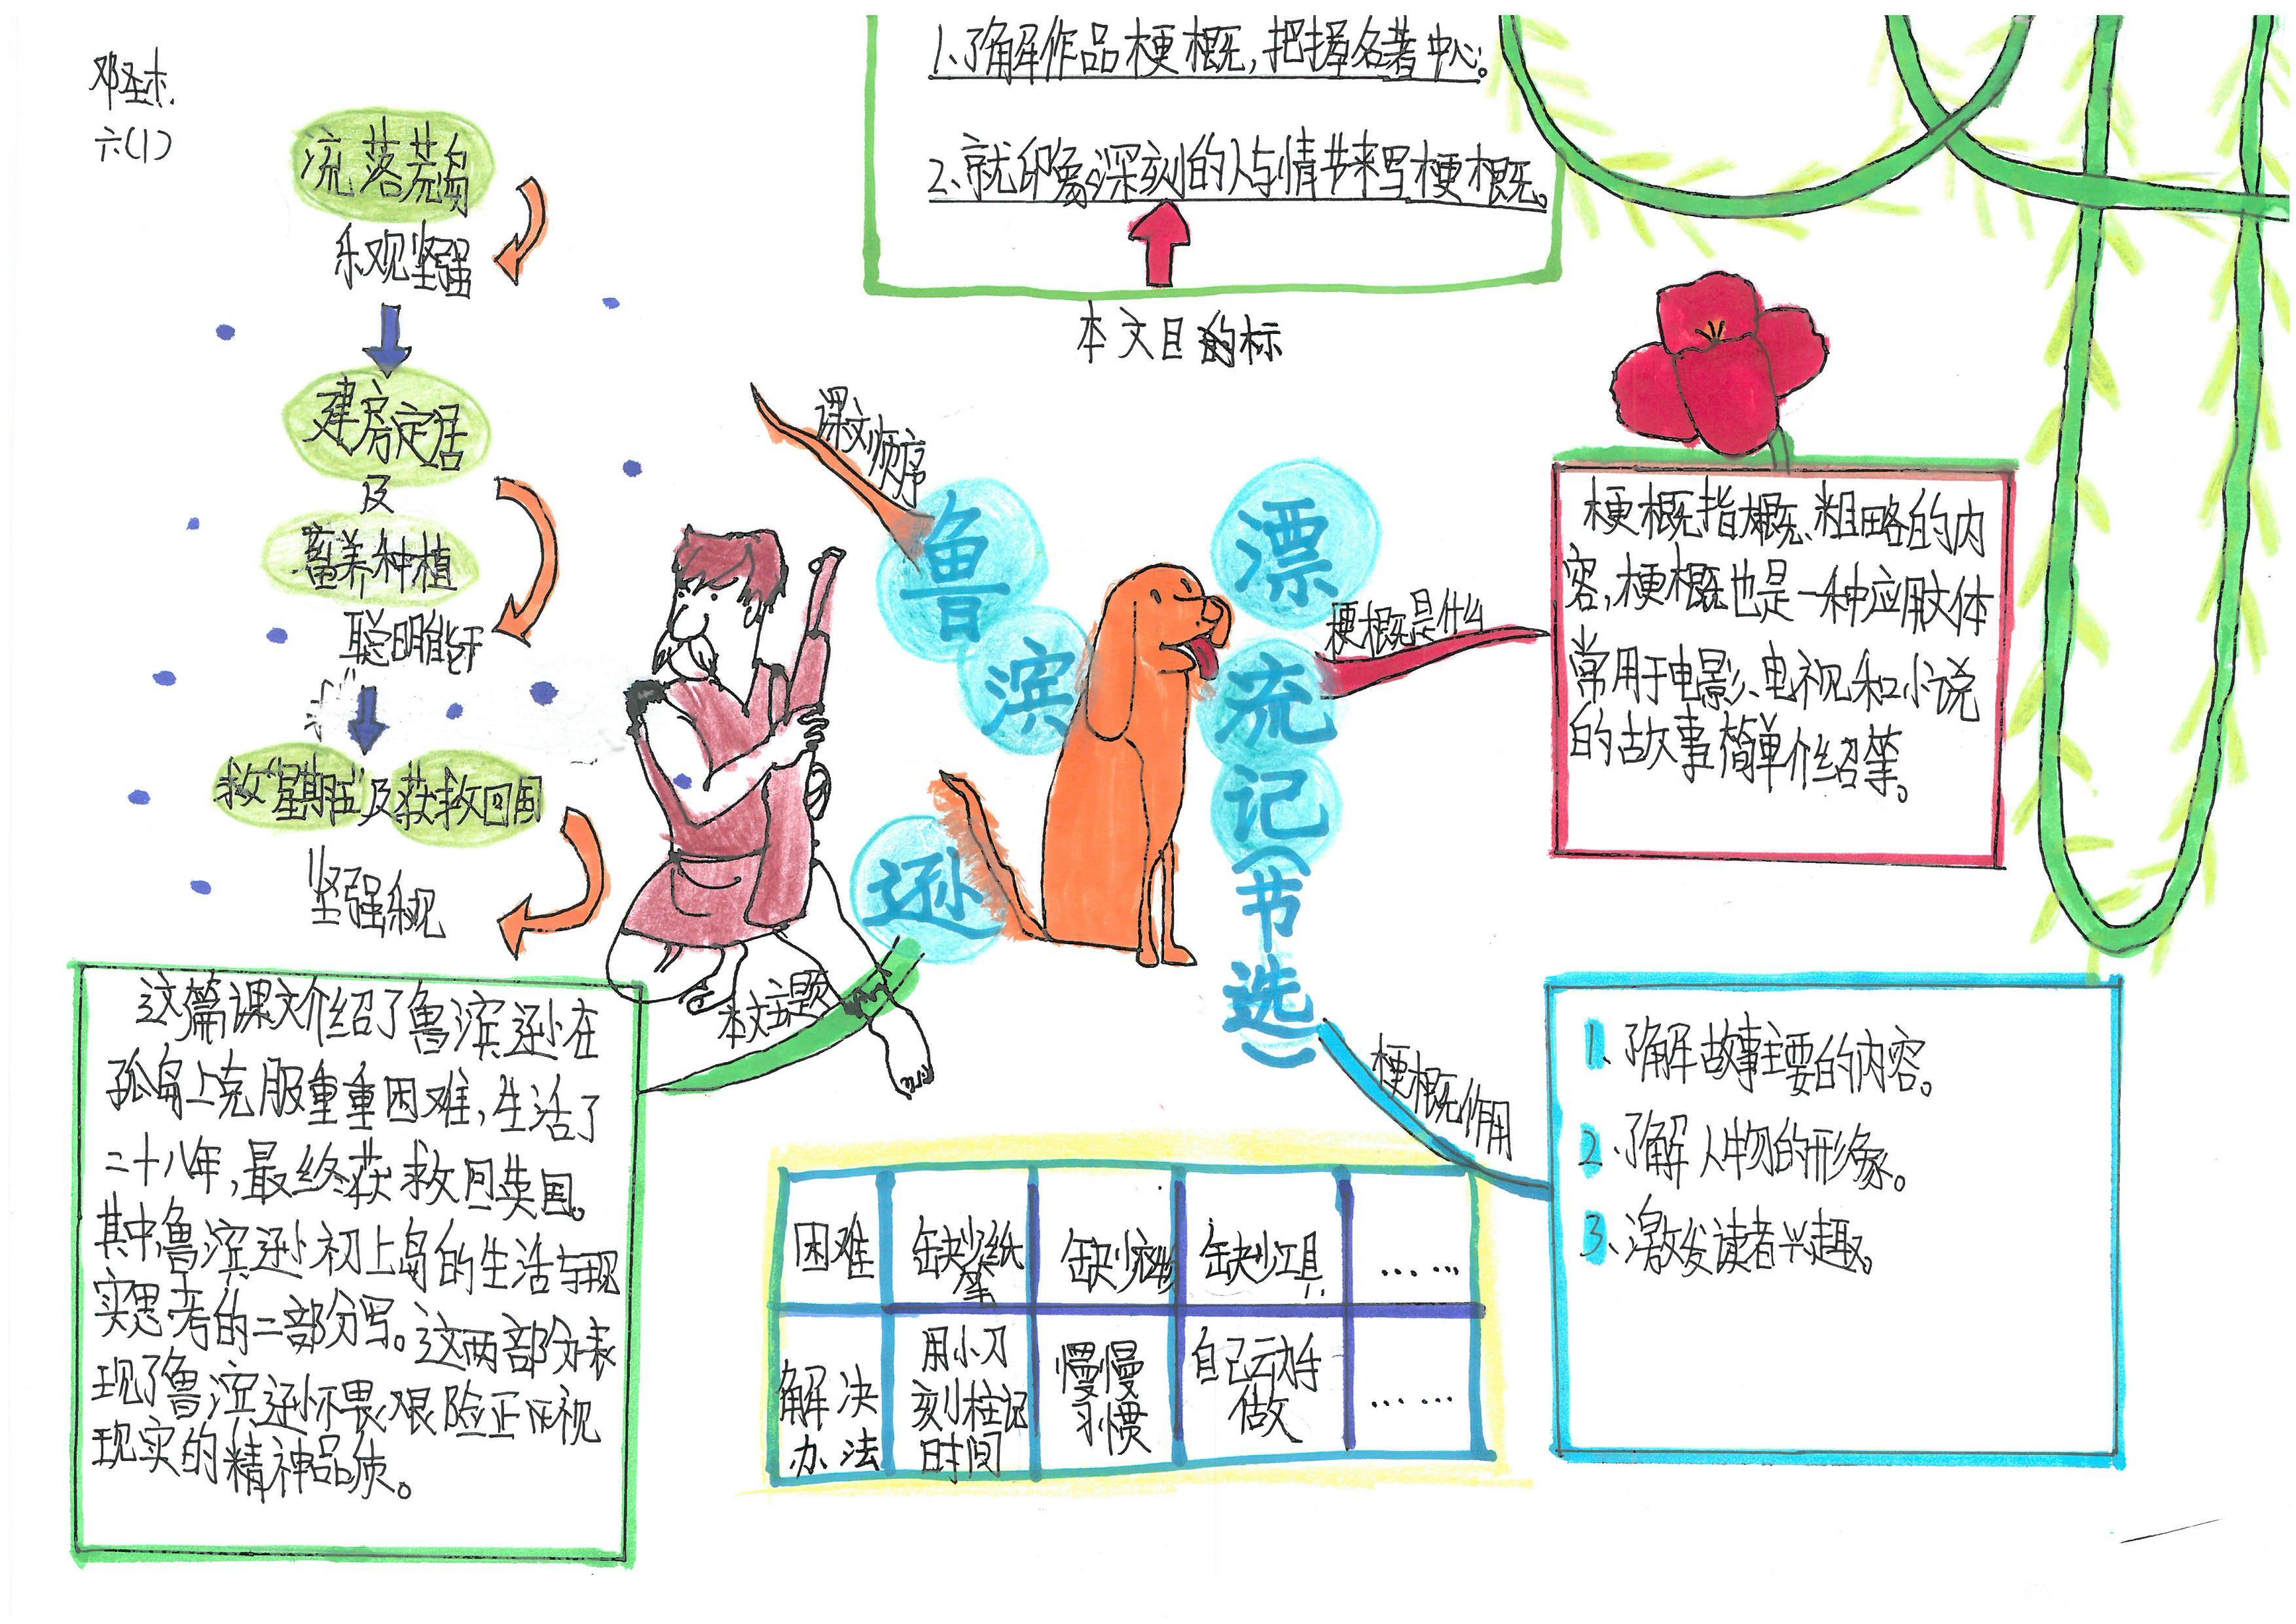 邓圣杰
六(1)
流落荒岛
乐观坚强
建房定居
及
畜养种植
聪明能干
救"星期五"及获救回国
坚强乐观
1、了解作品梗概，把握名著中心。
2、就印象深刻的人与情节来写梗概。
本文目的标
课文顺序
鲁
滨
逊
漂
流
记
(节
选)
梗概是什么
梗概指大概、粗略的内
容，梗概也是一种应用文体
常用于电影、电视和小说
的故事简单介绍等。
本文主题
这篇课文介绍了鲁滨逊在
孤岛上克服重重困难，生活了
二十八年，最终获救回英国。
其中鲁滨逊初上岛的生活与现
实思考的二部分写。这两部分表
现了鲁滨逊不畏艰险正视
现实的精神品质。
梗概作用
1、了解故事主要的内容。
2、了解人物的形象。
3、激发读者兴趣。
困难 缺少纸笔 缺少衣物 缺少工具 ……
解决办法 用小刀刻柱记时间 慢慢习惯 自己动手做 ……